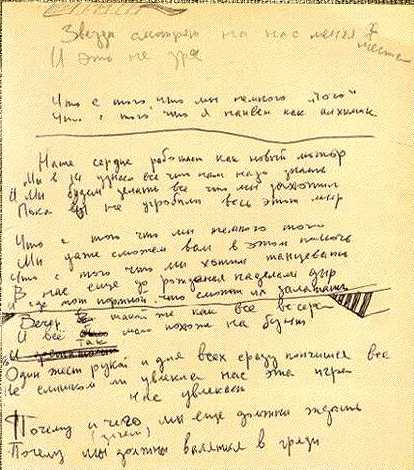 Звезды смотрят на нас меняя
места
И это не зря
Что с того, что мы немного „того“
Что с того что я наивен как
Наше сердце работает как новый мотор
Мы в 14 узнали все что нам надо знать
И мы будем делать все что мы захотим
Пока вы не угробили весь этот мир
Что с того что мы немного того
Мы даже сможем вам в этом помочь
Что с того что мы хотим танцевать
В нас еще до рожденья наделали дыр
И где тот портной, что сможет их залатать
Вечер такой же как все вечера
И все так мало похоже на будни
Один жест рукой и для всех сразу кончится все
Не слишком ли увлекла нас эта игра
нас увлекла
Почему и чего мы еще должны ждать
(зачем)
Почему мы должны валяться в грязи